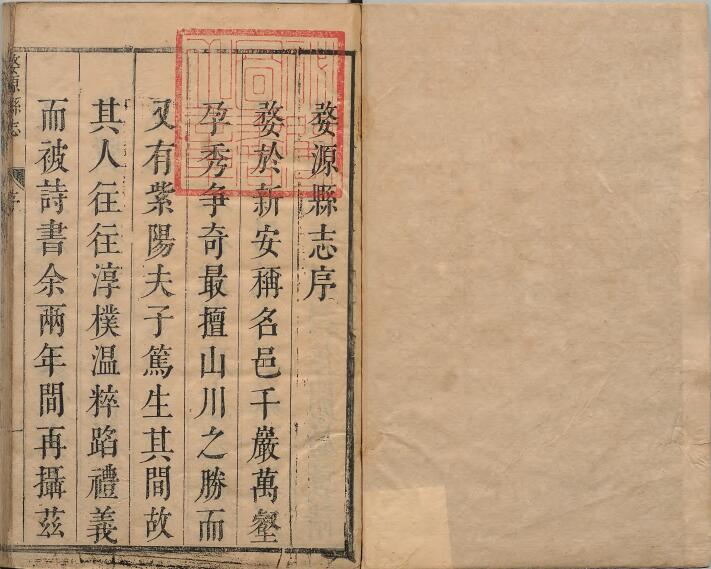 婺源縣志序
婺於新安稱名邑千巖萬壑
孕秀争奇最擅山川之勝而
又有紫陽夫子篤生其間故
其人往往淳樸温粹蹈禮義
而被詩書余兩年間再攝茲
婺源縣志
序